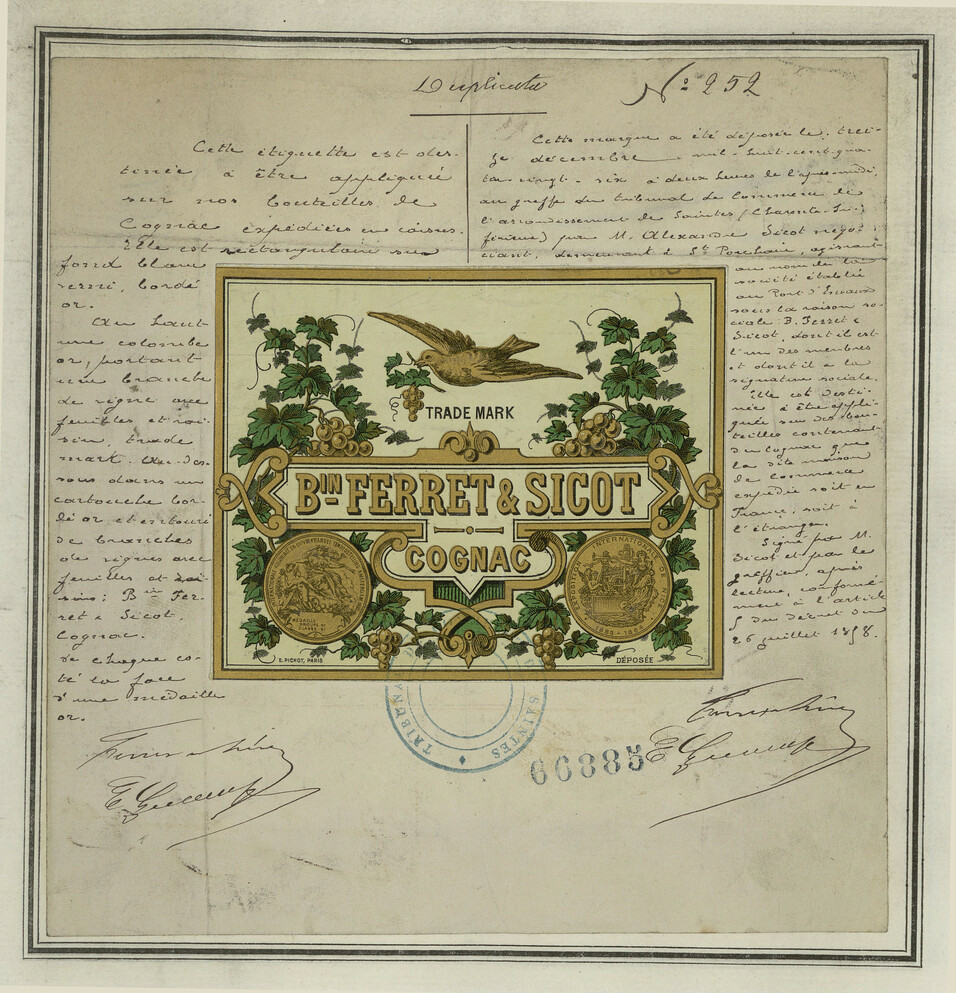 Duplicata
N° 252
Cette étiquette est des-
tinée à être appliquée
sur nos bouteilles de
Cognac expédiées en caisses.
Elle est rectangulaire sur
fond blanc
verni, bordé
or.
Au haut
une colombe
or, portant
une branche
de vigne avec
feuilles et rai-
sin, trade
mark. Au des-
sous dans un
cartouche bor-
dé or et entouré
de branches
de vignes avec
feuilles et rai-
sins : Bin Fer-
ret & Sicot,
Cognac.
De chaque co-
té la face
d'une médaille
or.
Cette marque a été déposée le, trei-
ze décembre mil-huit-cent-qua-
tre-vingt-six à deux heures de l'après-midi,
au greffe du tribunal de Commerce de
l'arrondissement de Saintes (Charente-In-
férieure) par M. Alexandre Sicot négoci-
ciant, demeurant à St Porchaire, agissant
au nom de la
société établie
au Port d'Envaux
sous la raison so-
ciale B. Ferret &
Sicot, dont il est
l'un des membres
et dont il a la
signature sociale.
Elle est desti-
née à être appli-
quée sur des bou-
teilles contenant
du Cognac que
la dite maison
de commerce
expédie soit en
France, soit à
l'étranger.
Signé par M.
Sicot et par le
greffier, après
lecture, conformé-
ment à l'article
5 du décret du
26 juillet 1858.
TRADE MARK
BIN FERRET & SICOT
COGNAC
MÉDAILLE
EXPOSITION INTERNATIONALE DE
E. PICHOT, PARIS
DÉPOSÉE
TRIBUN
SAINTES
66885